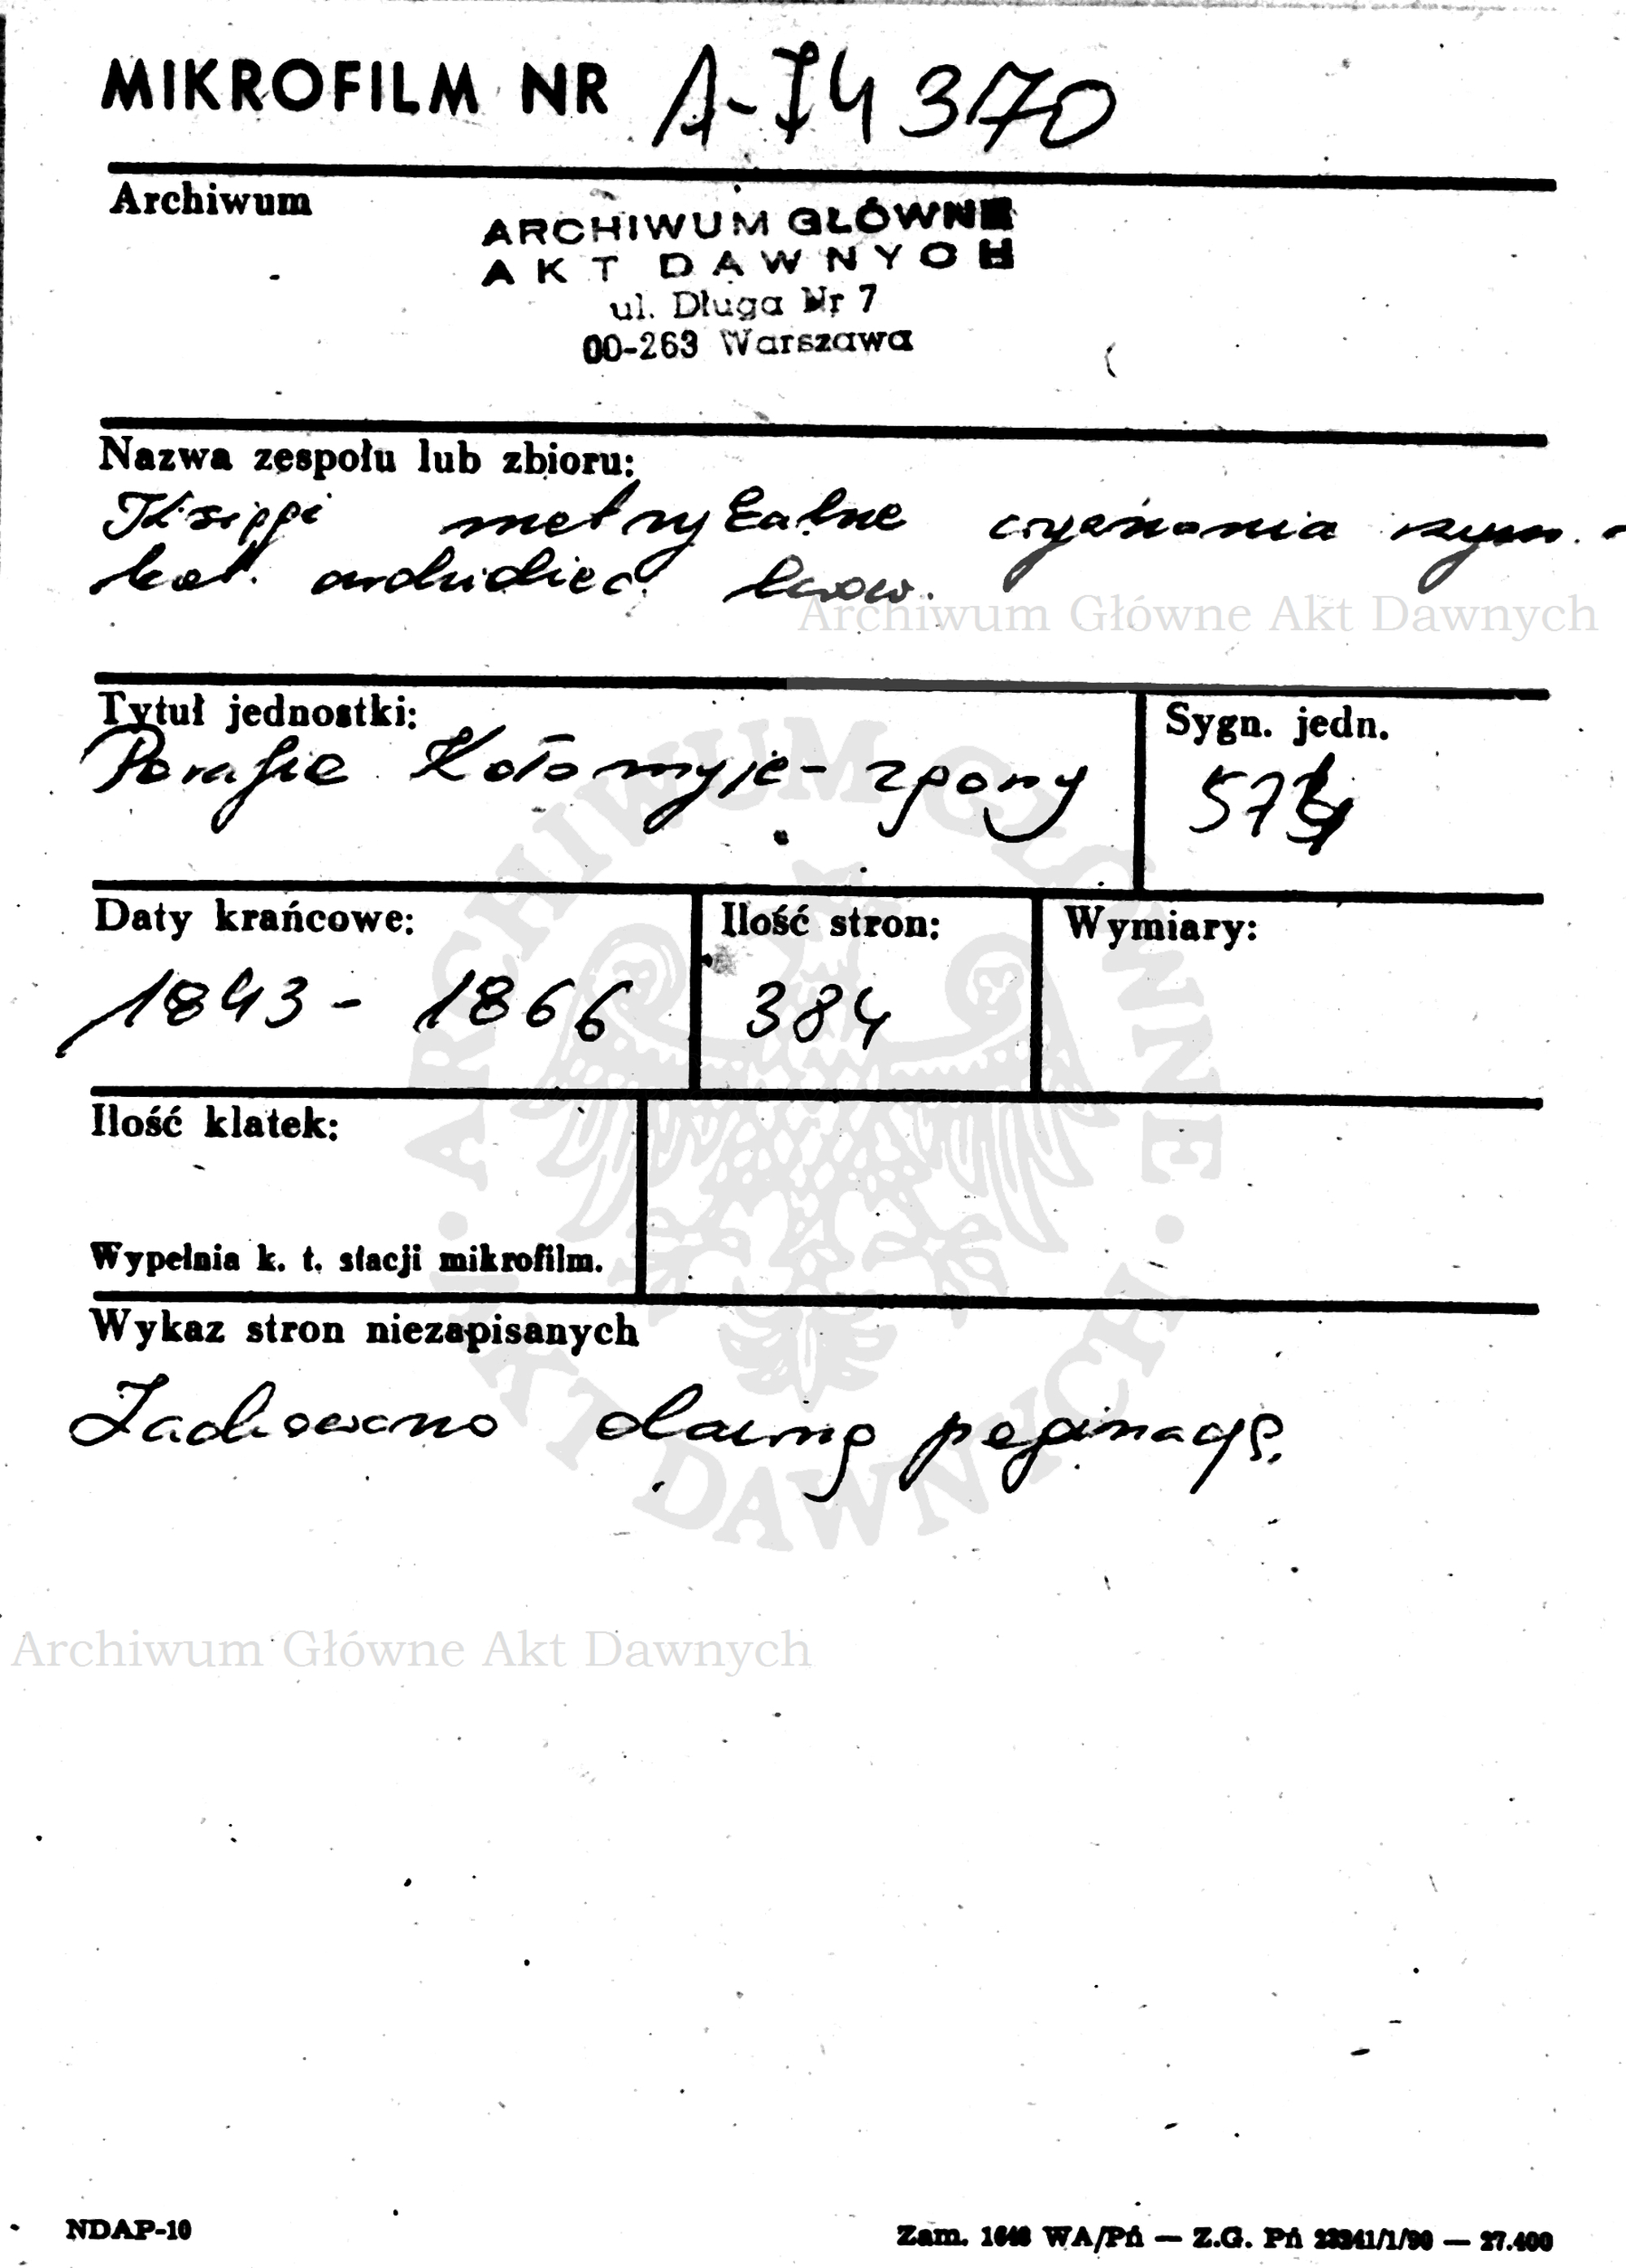 MIKROFILM NR A-74370
Archiwum
ARCHIWUM GŁÓWNE
AKT DAWNYCH
ul. Długa Nr 7
00-263 Warszawa
Nazwa zespołu lub zbioru:
Księgi metrykalne rzym.-
kat. archidiec. lwow.
Archiwum Główne Akt Dawnych
Tytuł jednostki:
Parafie Kołomyje - zgony
Sygn. jedn.
Daty krańcowe:
1843 - 1866
Ilość stron:
384
Wymiary:
Ilość klatek:
Wypełnia k. t. stacji mikrofilm.
Wykaz stron niezapisanych
Zachowano dawną paginację.
ARCHIWUM GŁÓWNE AKT DAWNYCH
Archiwum Główne Akt Dawnych
NDAP-10
Zam. WA/Pń — Z.G. Pń — 27.400